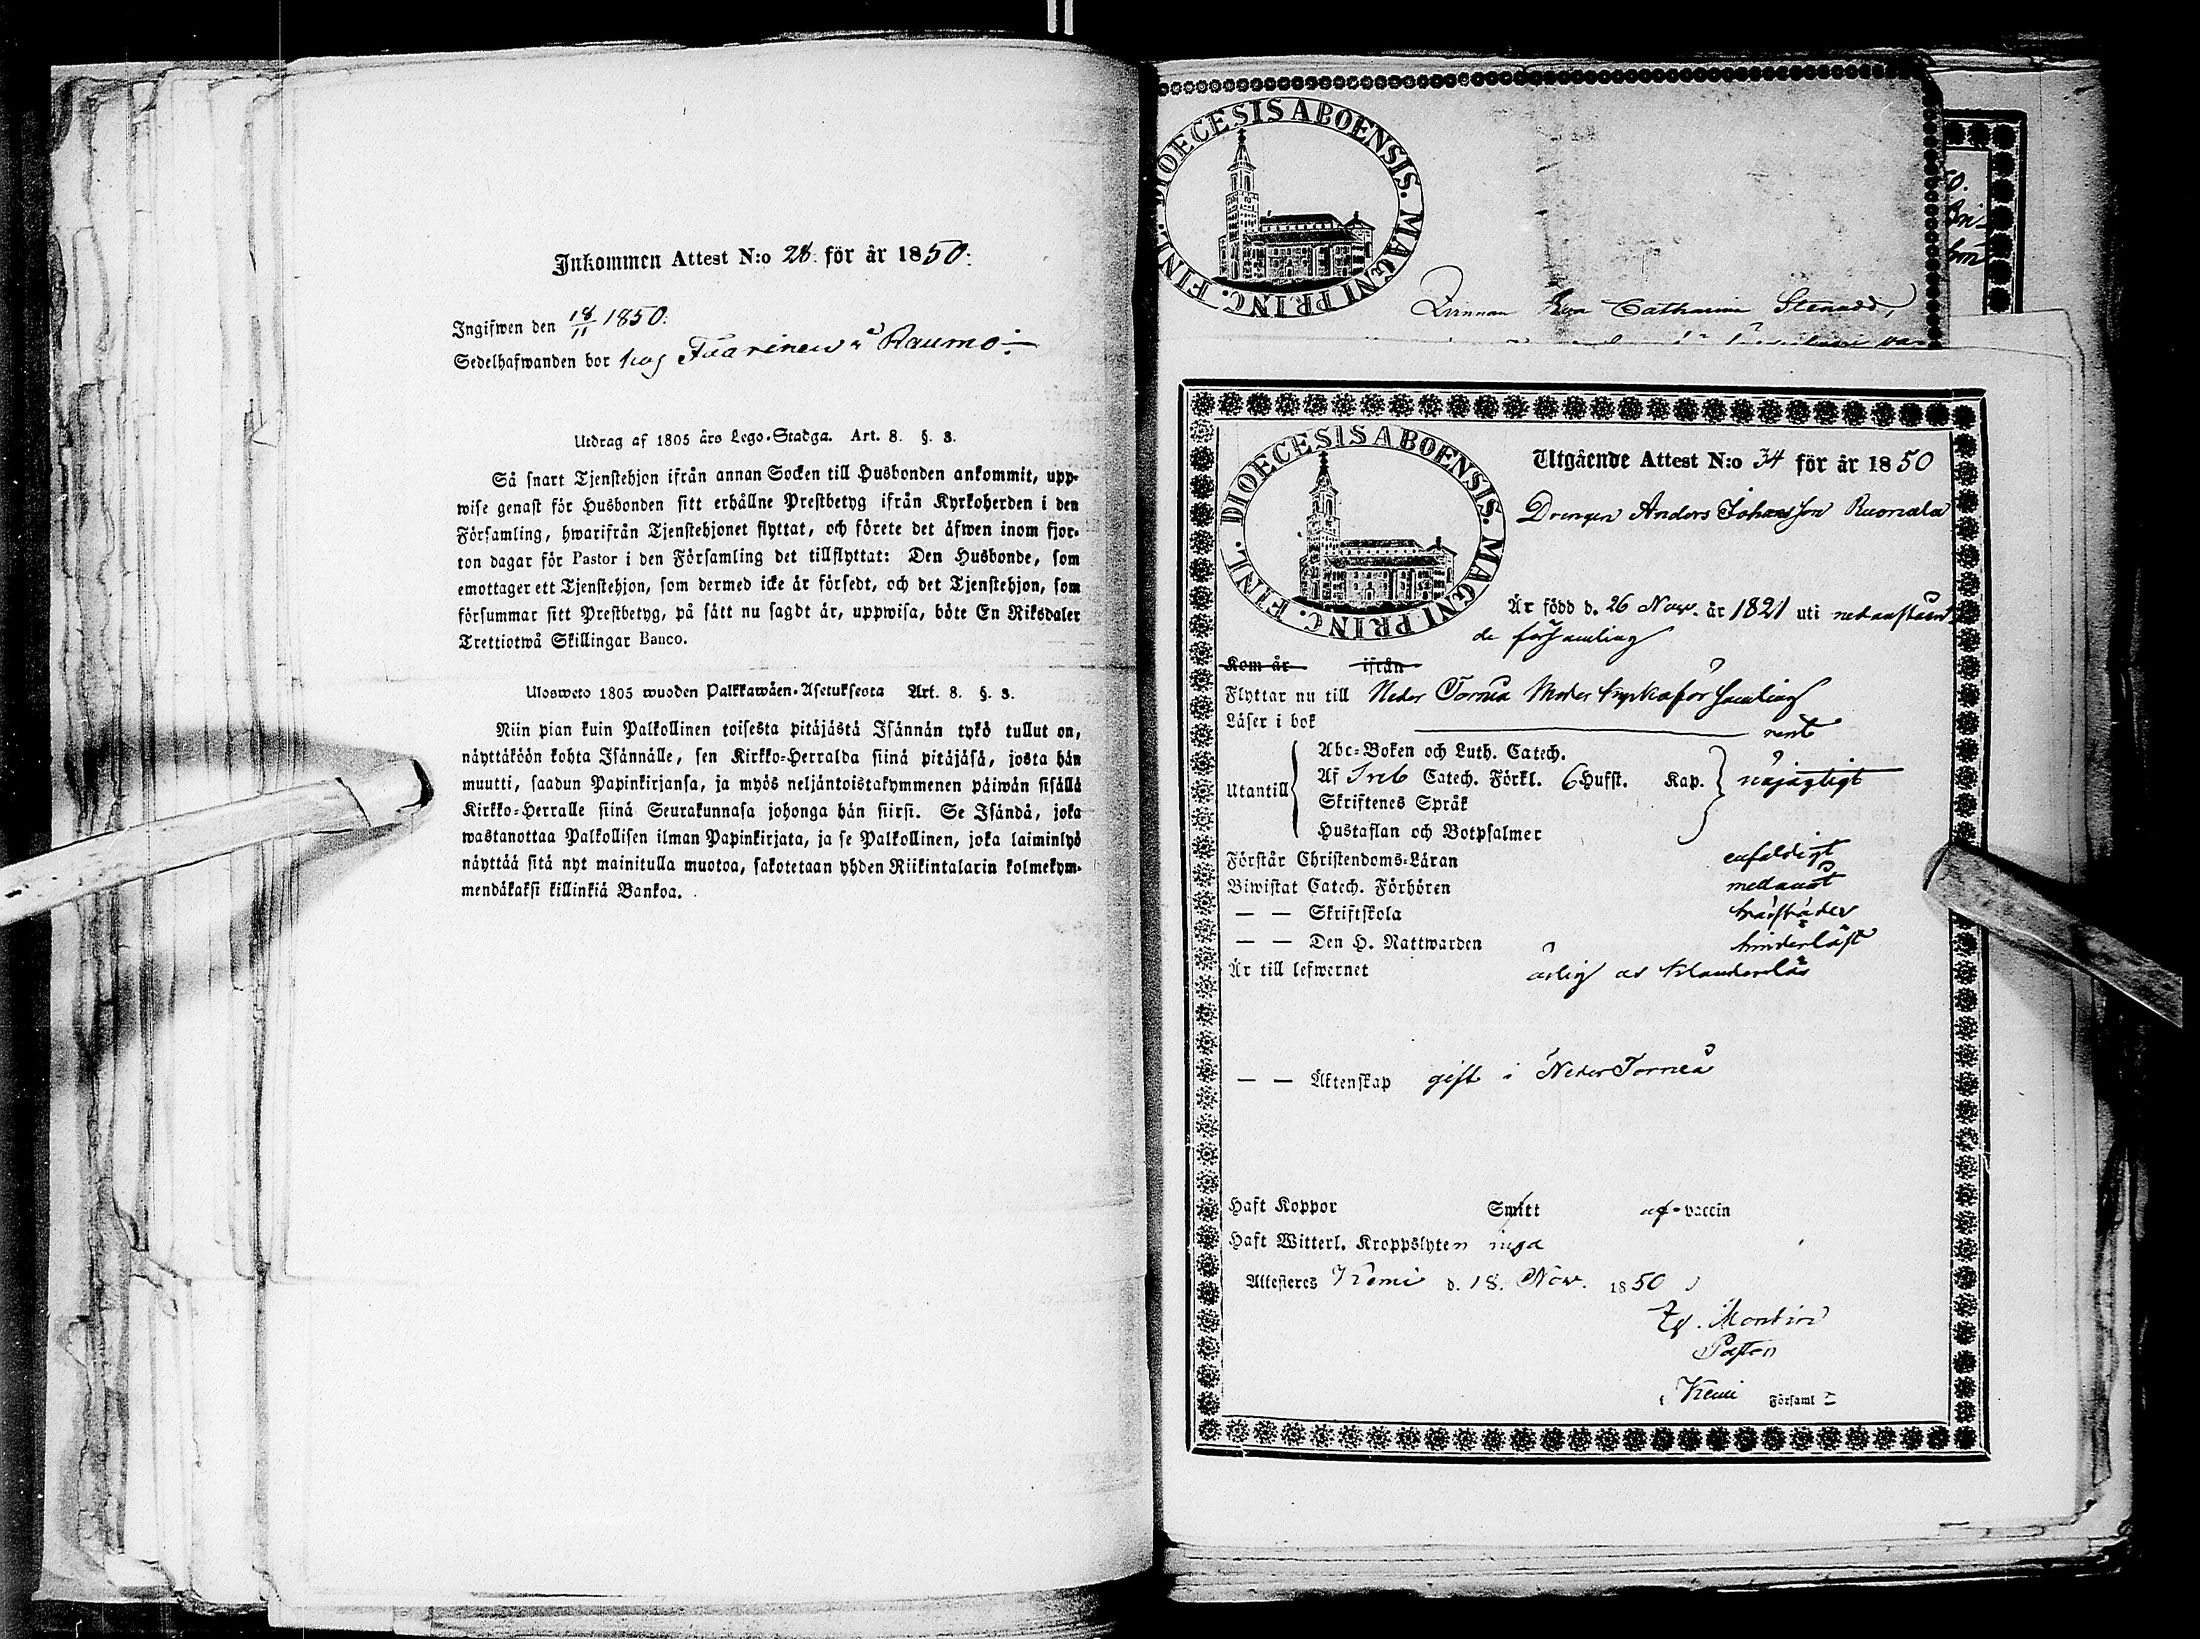 Inkommen Attest N:o 28. för år 1850.
Ingifwen den 18/11 1850.
Sedelhafwanden bor hos i Raumo
Utdrag af 1805 års Lego-Stadga. Art. 8. §. 3.
Så snart Tjenstehjon ifrån annan Socken till Husbonden ankommit, upp-
wise genast för Husbonden sitt erhållne Prestbetyg ifrån Kyrkoherden i den
Församling, hwarifrån Tjenstehjonet flyttat, och förete det äfwen inom fjor-
ton dagar för Pastor i den Församling det tillflyttat: Den Husbonde, som
emottager ett Tjenstehjon, som dermed icke är försedt, och det Tjenstehjon, som
försummar sitt Prestbetyg, på sätt nu sagdt är, uppwisa, böte En Riksdaler
Trettiotwå Skillingar Banco.
Ulosweto 1805 wuoden Palkkawäen-Asetuksesta Art. 8. §. 3.
Niin pian kuin Palkollinen toisesta pitäjästä Isännän tykö tullut on,
näyttäköön kohta Isännälle, sen Kirkko-Herralda siinä pitäjäsä, josta hän
muutti, saadun Papinkirjansa, ja myös neljäntoistakymmenen päiwän sisällä
Kirkko-Herralle siinä Seurakunnasa johonga hän siirsi. Se Isändä, joka
wastanottaa Palkollisen ilman Papinkirjata, ja se Palkollinen, joka laiminlyö
näyttää sitä nyt mainitulla muotoa, sakotetaan yhden Riikintalarin kolmekym-
mendäkaksi killinkiä Bankoa.
DIOECESIS ABOENSIS. MAGNI PRINC. FINL.
Qvinnan Eva Catharina
DIOECESIS ABOENSIS. MAGNI PRINC. FINL.
Utgående Attest N:o 34 för år 1850
Drengen Anders Johansson Ruonala
Är född d. 26 Nov. år 1821 uti nedanståen-
de församling
Kom år ifrån
Flyttar nu till Neder Torneå Moder kyrkoförsamling
Läser i bok rent
Utantill
Abc-Boken och Luth. Catech.
Af Sveb Catech. Förkl. 6 Hufst. Kap. nöjagtigt
Skriftenes Språk
Hustaflan och Botpsalmer
Förstår Christendoms-Läran enfaldigt
Biwistat Catech. Förhören medanåt
— — Skriftskola
— — Den H. Nattwarden hinderlöst
Är till lefwernet ärlig o klanderlös
— — Äktenskap gift i Neder Torneå
Haft Koppor Smitt af vaccin
Haft Witterl. Kroppslyten inga
Attesteres Kemi d. 18. Nov. 1850
Pastor
i Kemi Församl